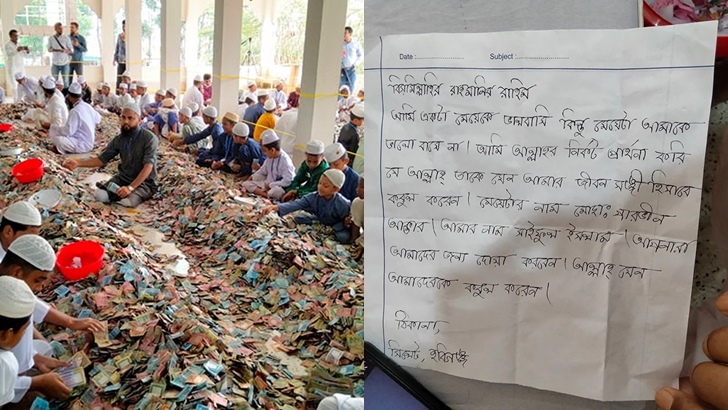 Date : .................... Subject : ....................
বিসমিল্লাহির রাহমানির রাহিম
আমি একটা মেয়েকে ভালবাসি কিন্তু মেয়েটা আমাকে
ভালো বাসে না। আমি আল্লাহর নিকট প্রার্থনা করি
যে আল্লাহ তাকে যেন আমার জীবন সঙ্গী হিসাবে
কবুল করেন। মেয়েটার নাম মোছাঃ শারমীন
আক্তার। আমার নাম সাইফুল ইসলাম। আপনারা
আমাদের জন্য দোয়া করবেন। আল্লাহ যেন
আমাদেরকে কবুল করেন।
ঠিকানা,
সিলেট, হবিগঞ্জ